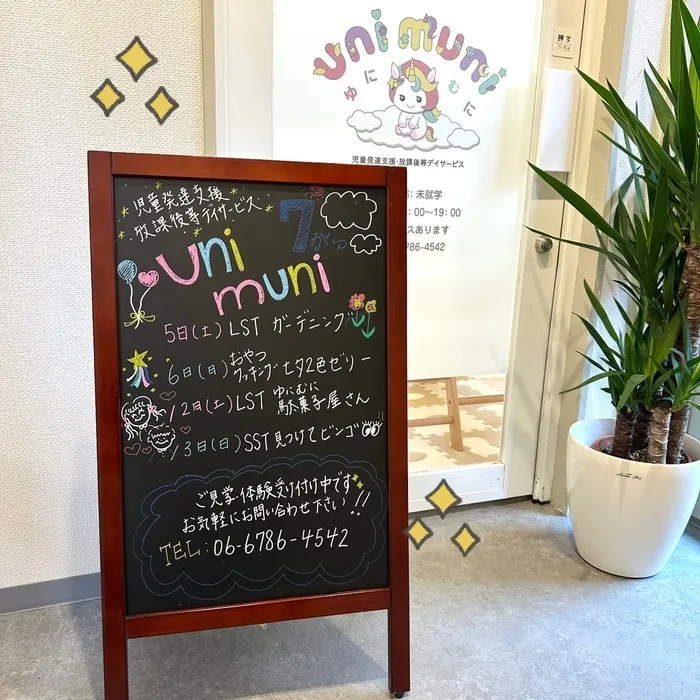 児童発達支援
放課後等デイサービス
7がつ
uni
muni
5日(土) LST ガーデニング
6日(日) おやつクッキング 七夕2色ゼリー
12日(土) LST ゆにむに駄菓子屋さん
13日(日) SST 見つけてビンゴ
ご見学・体験受け付け中です
お気軽にお問い合わせ下さい!!
TEL:06-6786-4542
uni muni
ゆにむに
児童発達支援・放課後等デイサービス
未就学
:00〜19:00
スあります
786-4542
押す